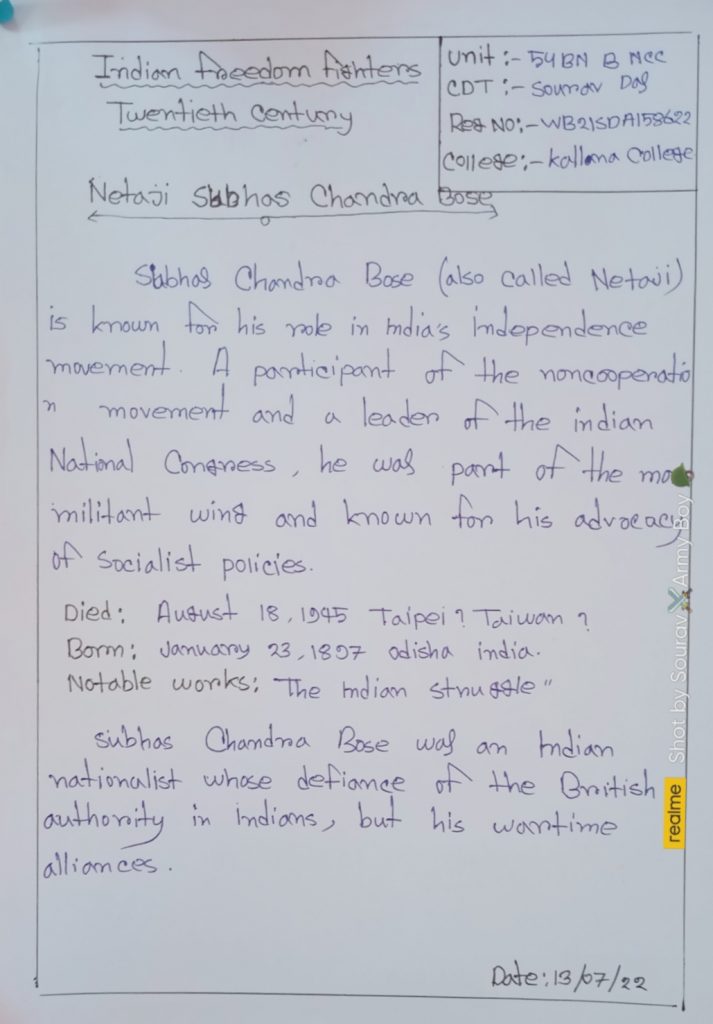 Indian freedom fighters
Twentieth century
Unit :- 54 BN B NCC
CDT :- Sourav Das
Reg NO:- WB21SDA158622
College:- Kallana College
Netaji Subhas Chandra Bose
Subhas Chandra Bose (also called Netaji)
is known for his role in India's independence
movement. A participant of the noncooperatio
n movement and a leader of the indian
National Congress, he was part of the mo
militant wing and known for his advocacy
of socialist policies.
Died: August 18, 1945 Taipei? Taiwan?
Born: January 23, 1897 odisha india.
Notable works: The Indian struggle"
subhas Chandra Bose was an Indian
nationalist whose defiance of the British
authority in Indians, but his wartime
alliances.
Date: 13/07/22
realme Shot by Sourav Army Boy